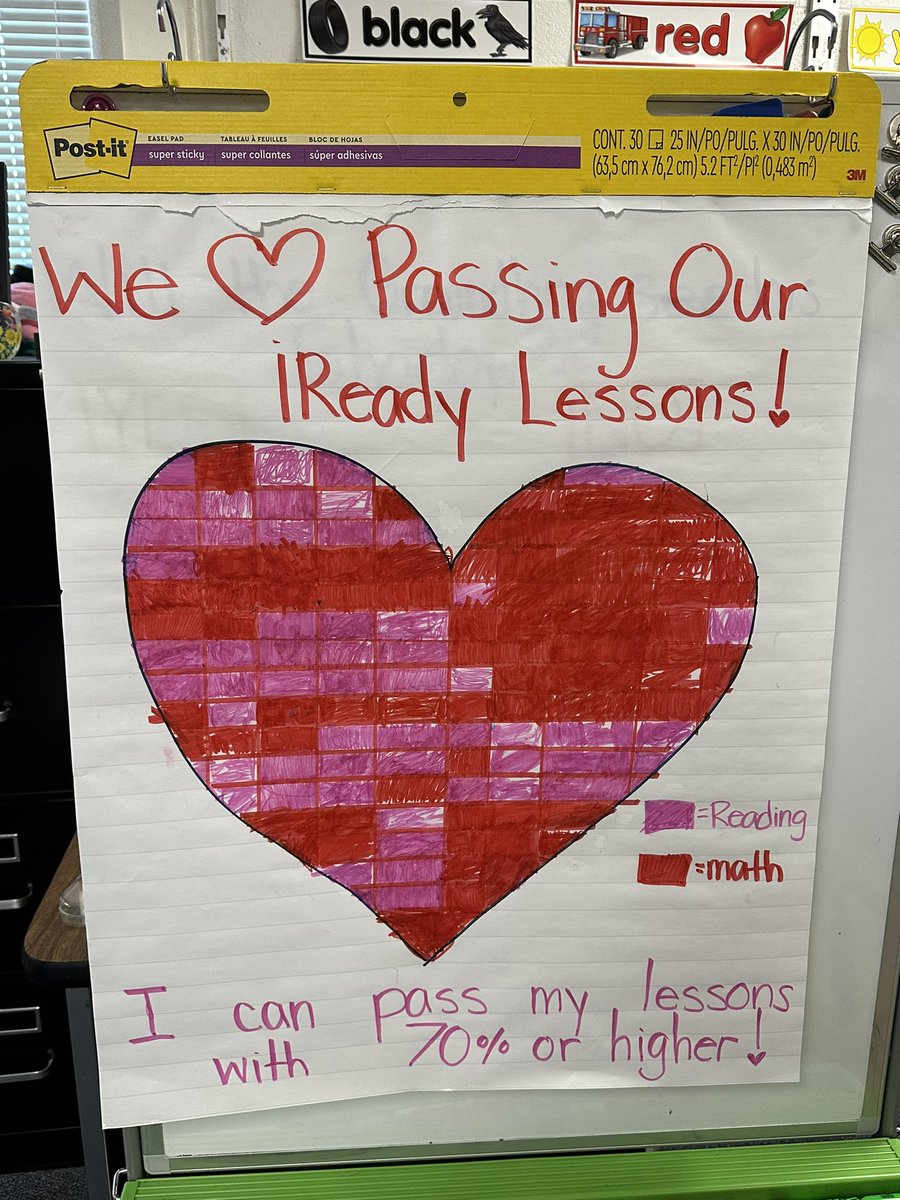 black
red
Post-it
EASEL PAD
super sticky
TABLEAU À FEUILLES
super collantes
BLOC DE HOJAS
súper adhesivas
CONT. 30 25 IN/PO/PULG. X 30 IN/PO/PULG.
(63,5 cm x 76,2 cm) 5.2 FT²/PI² (0,483 m²)
3M
We ♡ Passing Our
iReady Lessons!
=Reading
=math
I can pass my lessons
with 70% or higher!